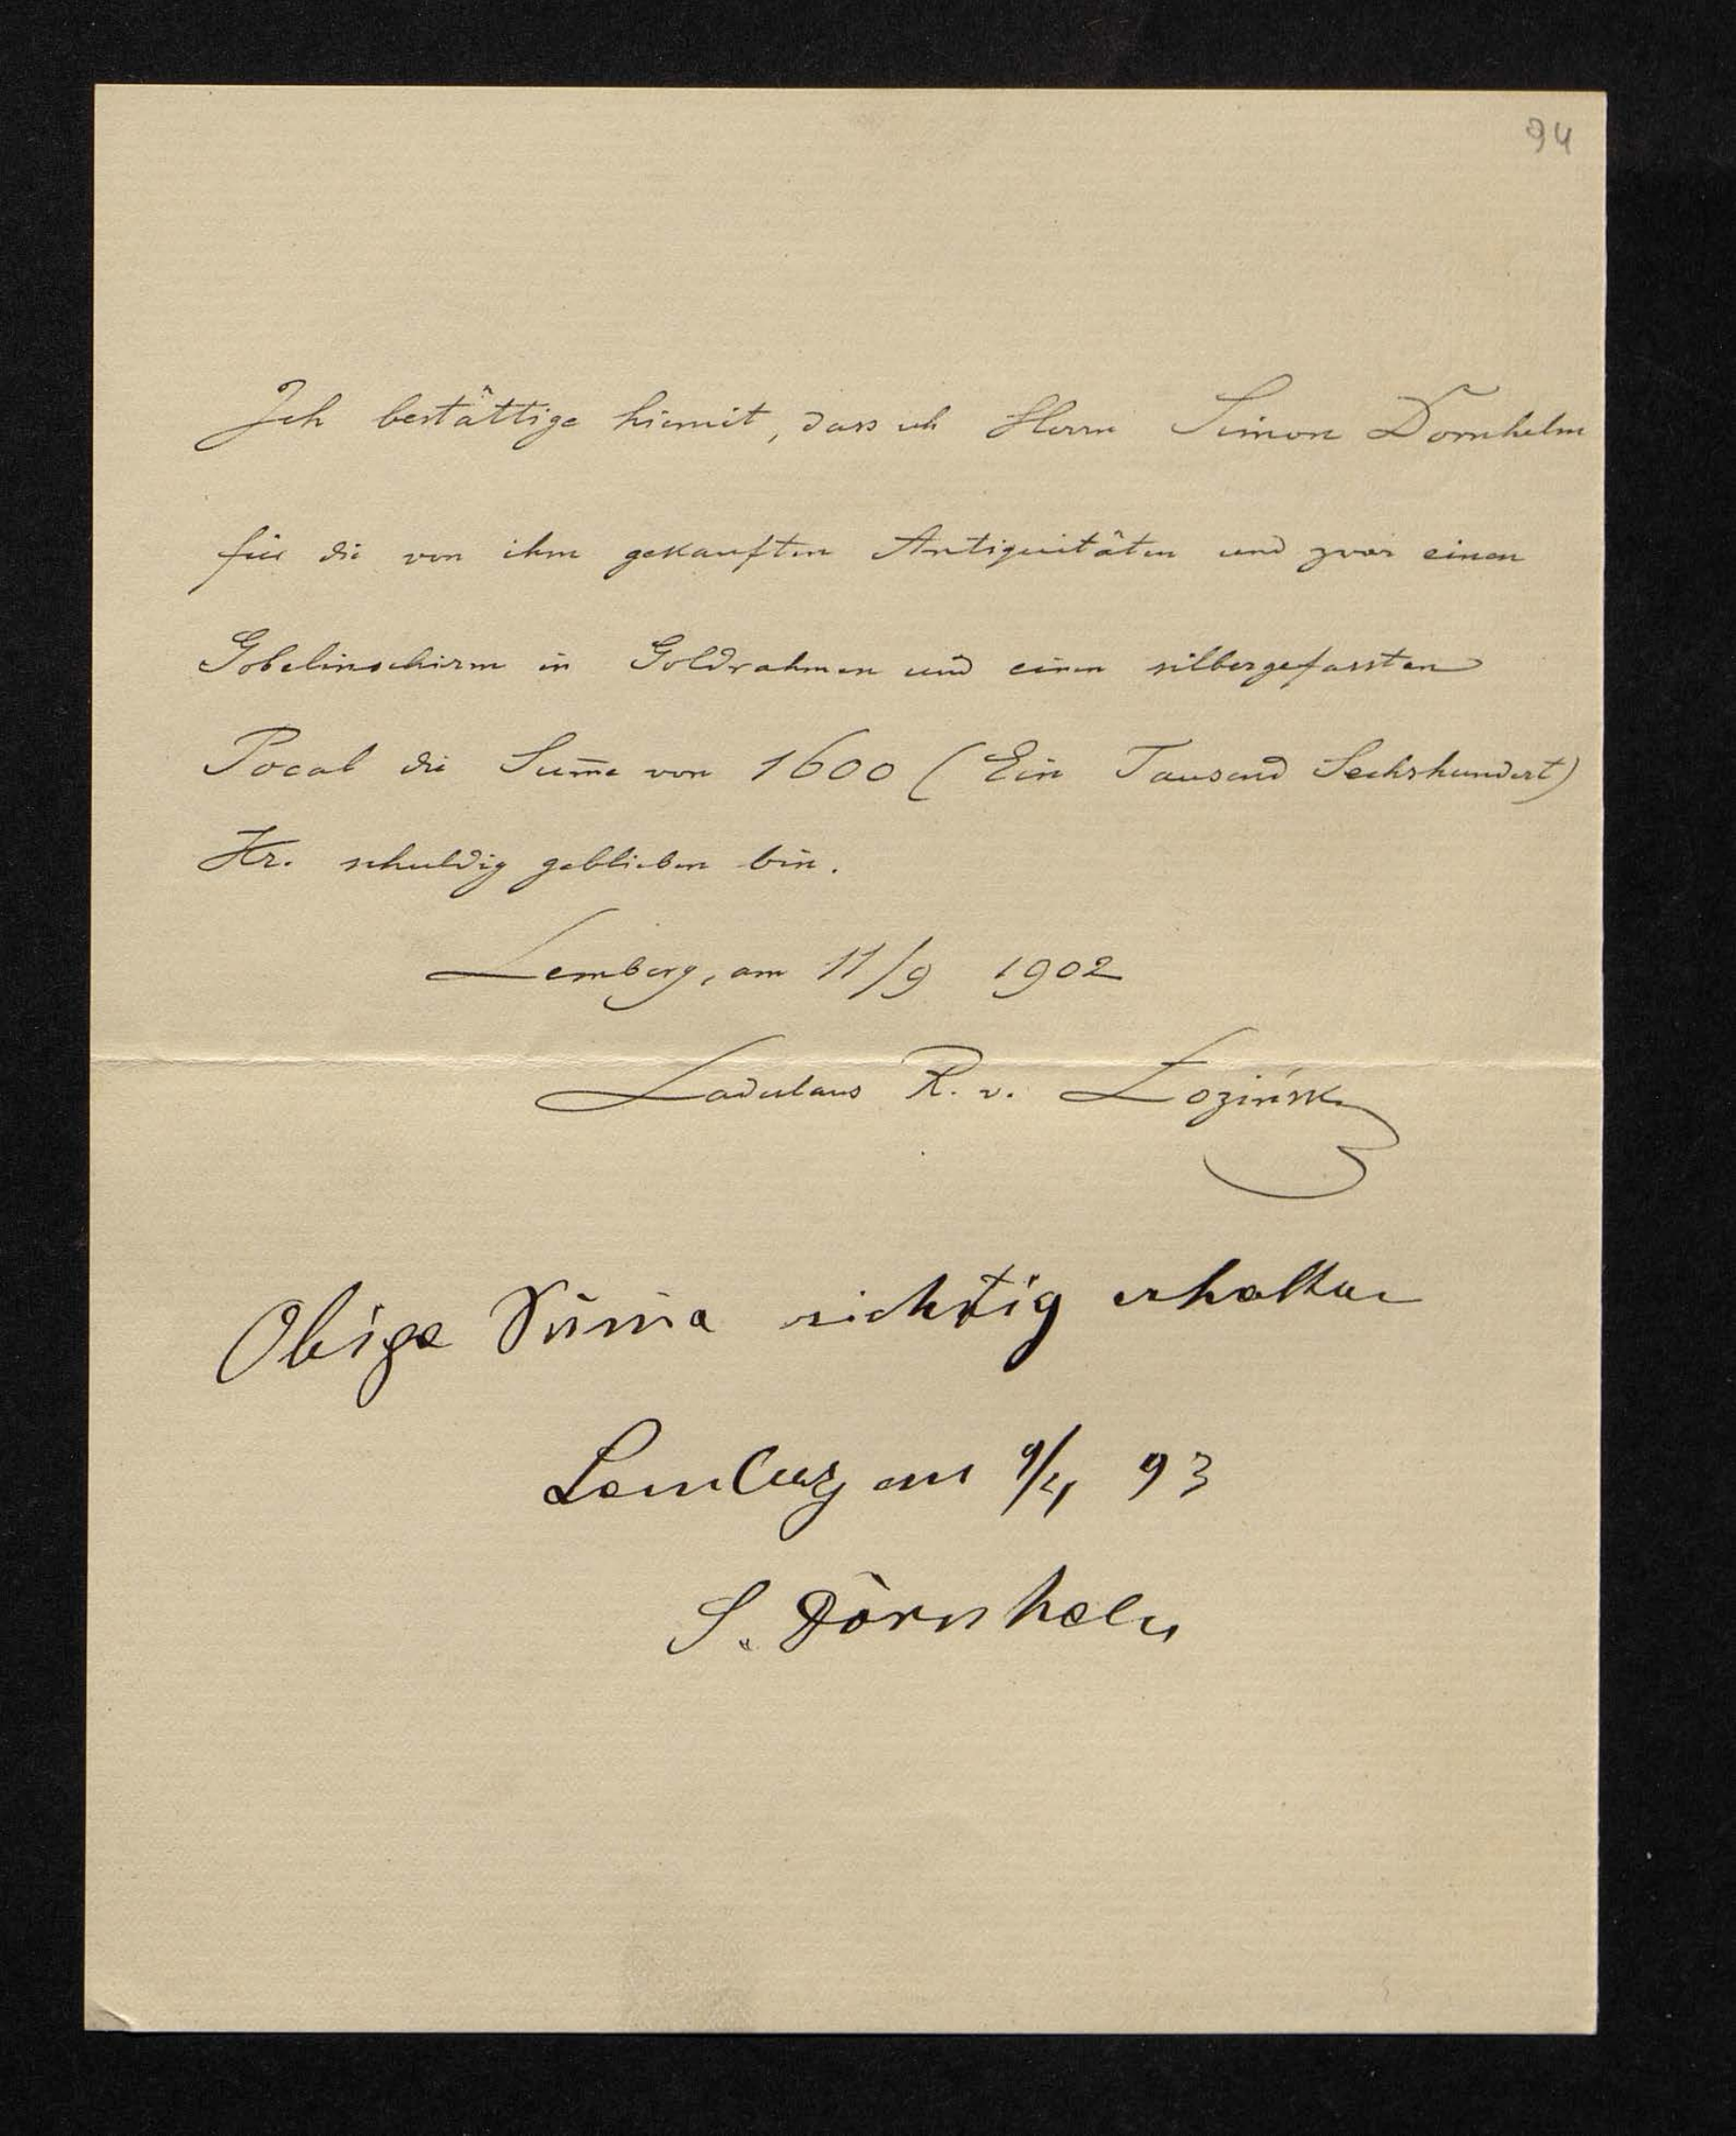 94
Ich bestättige hiemit, dass ich Herrn Simon Dornhelm
für die von ihm gekauften Antiquitäten und zwar einen
Gobelinschirm in Goldrahmen und einen silbergefassten
Pocal die Sum̅e von 1600 (Ein Tausend Sechshundert)
Kr. schuldig geblieben bin.
Lemberg, am 11/9 1902
Ladislaus R. v. Łoziński
Obige Sum̅a richtig erhalten
Lemberg am 9/4 93
S. Dornhelm